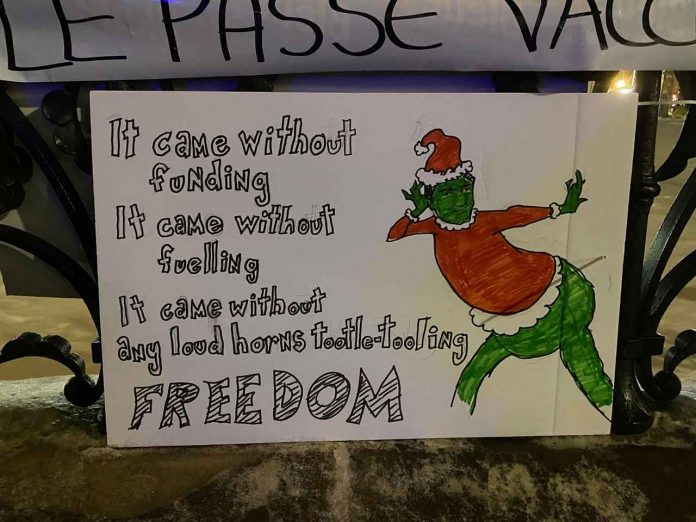 LE PASSE VACC
It came without
funding
It came without
fuelling
It came without
any loud horns tootle-tooling
FREEDOM